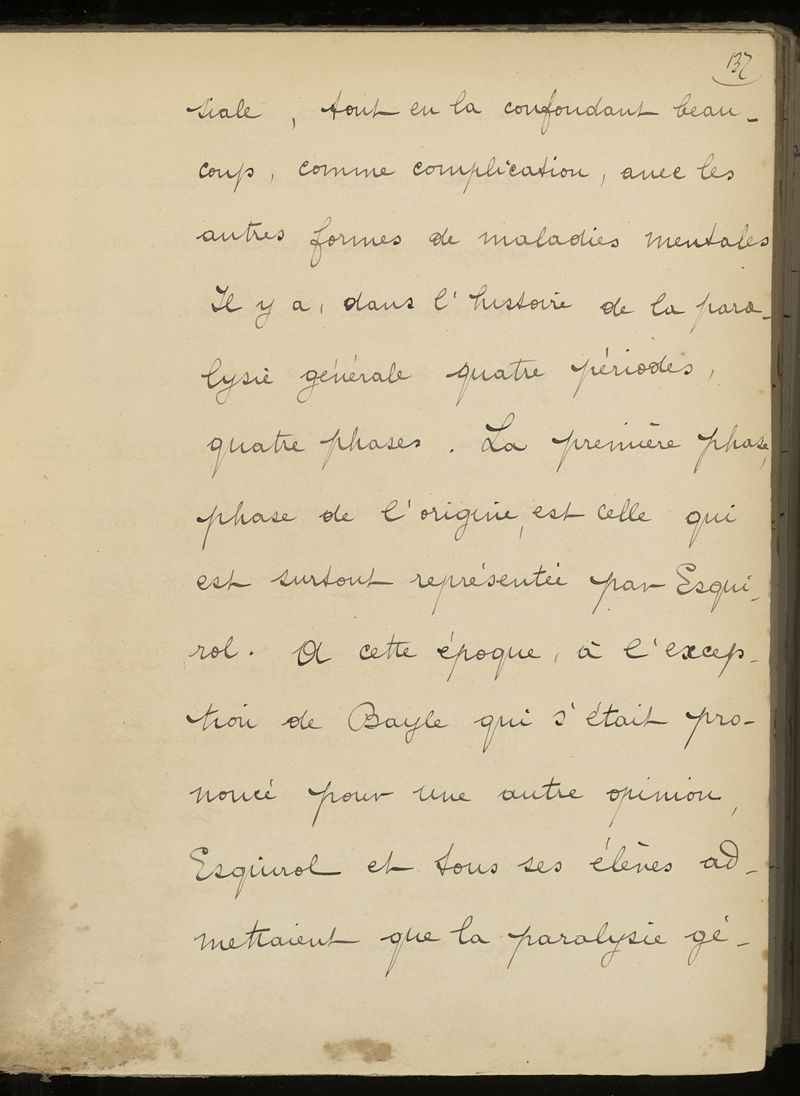 137
siale, tout en la confondant beau-
coup, comme complication, avec les
autres formes de maladies mentales
Il y a, dans l'histoire de la para-
lysie générale quatre périodes,
quatre phases. La première phase,
phase de l'origine, est celle qui
est surtout représentée par Esqui-
rol. A cette époque, à l'excep-
tion de Bayle qui s'était pro-
noncé pour une autre opinion,
Esquirol et tous ses élèves ad-
mettaient que la paralysie gé-